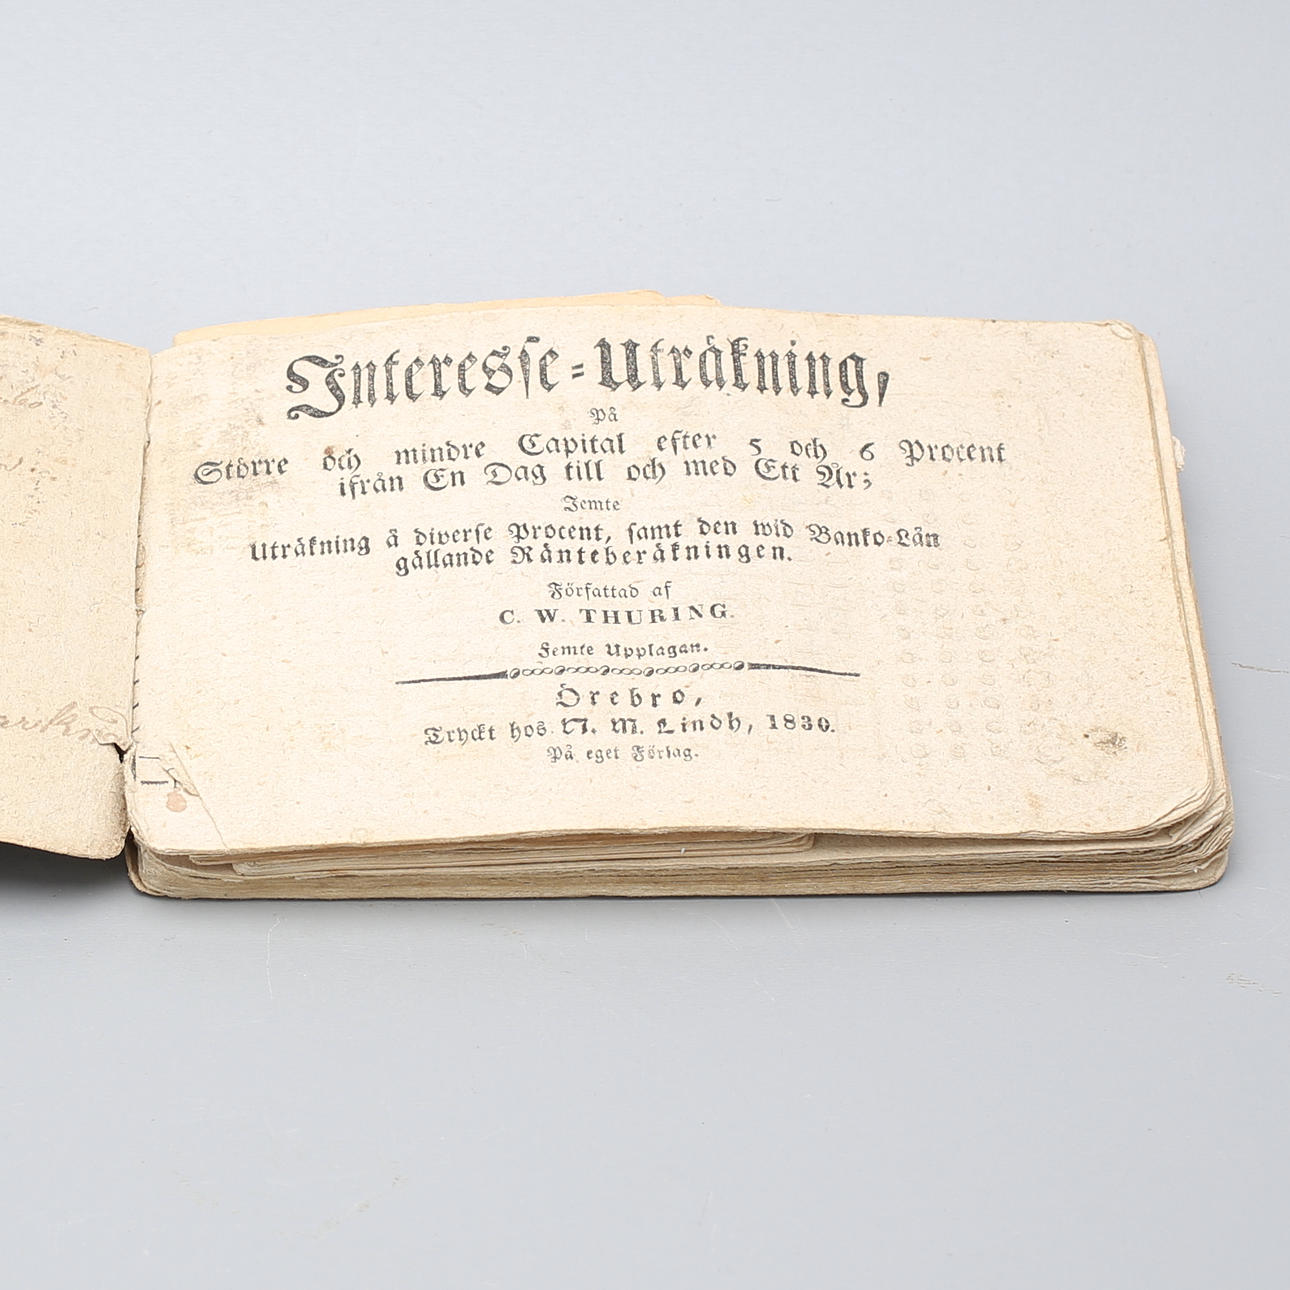 Interesse-Uträkning,
På
Större och mindre Capital efter 5 och 6 Procent
ifrån En Dag till och med Ett År;
Jemte
Uträkning å diverse Procent, samt den wid Banko-Lån
gällande Ränteberäkningen.
Författad af
C. W. THURING.
Femte Upplagan.
Örebro,
Tryckt hos N. M. Lindh, 1830.
På eget Förlag.